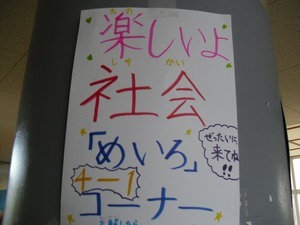 たの
楽しいよ
しゃ かい
社会
「めいろ」
ぜったいに
来てね!!
4-1
コーナー